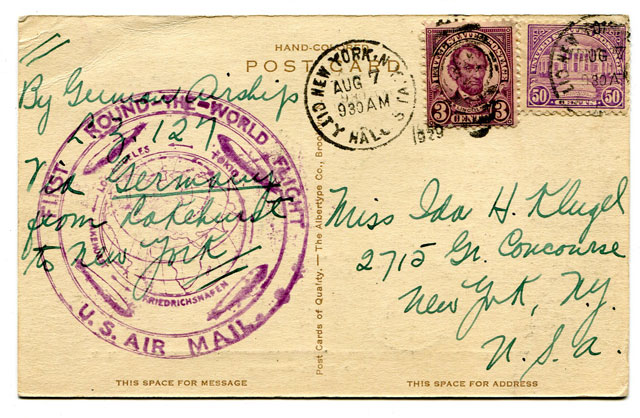 HAND-COLORED
POST CARD
NEW YORK, N.Y.
AUG 7
930 AM
CITY HALL STA.
1929
UNITED STATES POSTAGE
LINCOLN
3 CENTS 3
50 CENTS 50
AUG 7
930 AM
By German Airship
L.Z. 127
Via Germany
from Lakehurst
to New York
FIRST ROUND-THE-WORLD FLIGHT
LOS ANGELES
TOKIO
LAKEHURST
FRIEDRICHSHAFEN
U.S. AIR MAIL
Post Cards of Quality. — The Albertype Co., Broo
Miss Ida H. Klugel
2715 Gr. Concourse
New York, N.Y.
U.S.a.
THIS SPACE FOR MESSAGE
THIS SPACE FOR ADDRESS